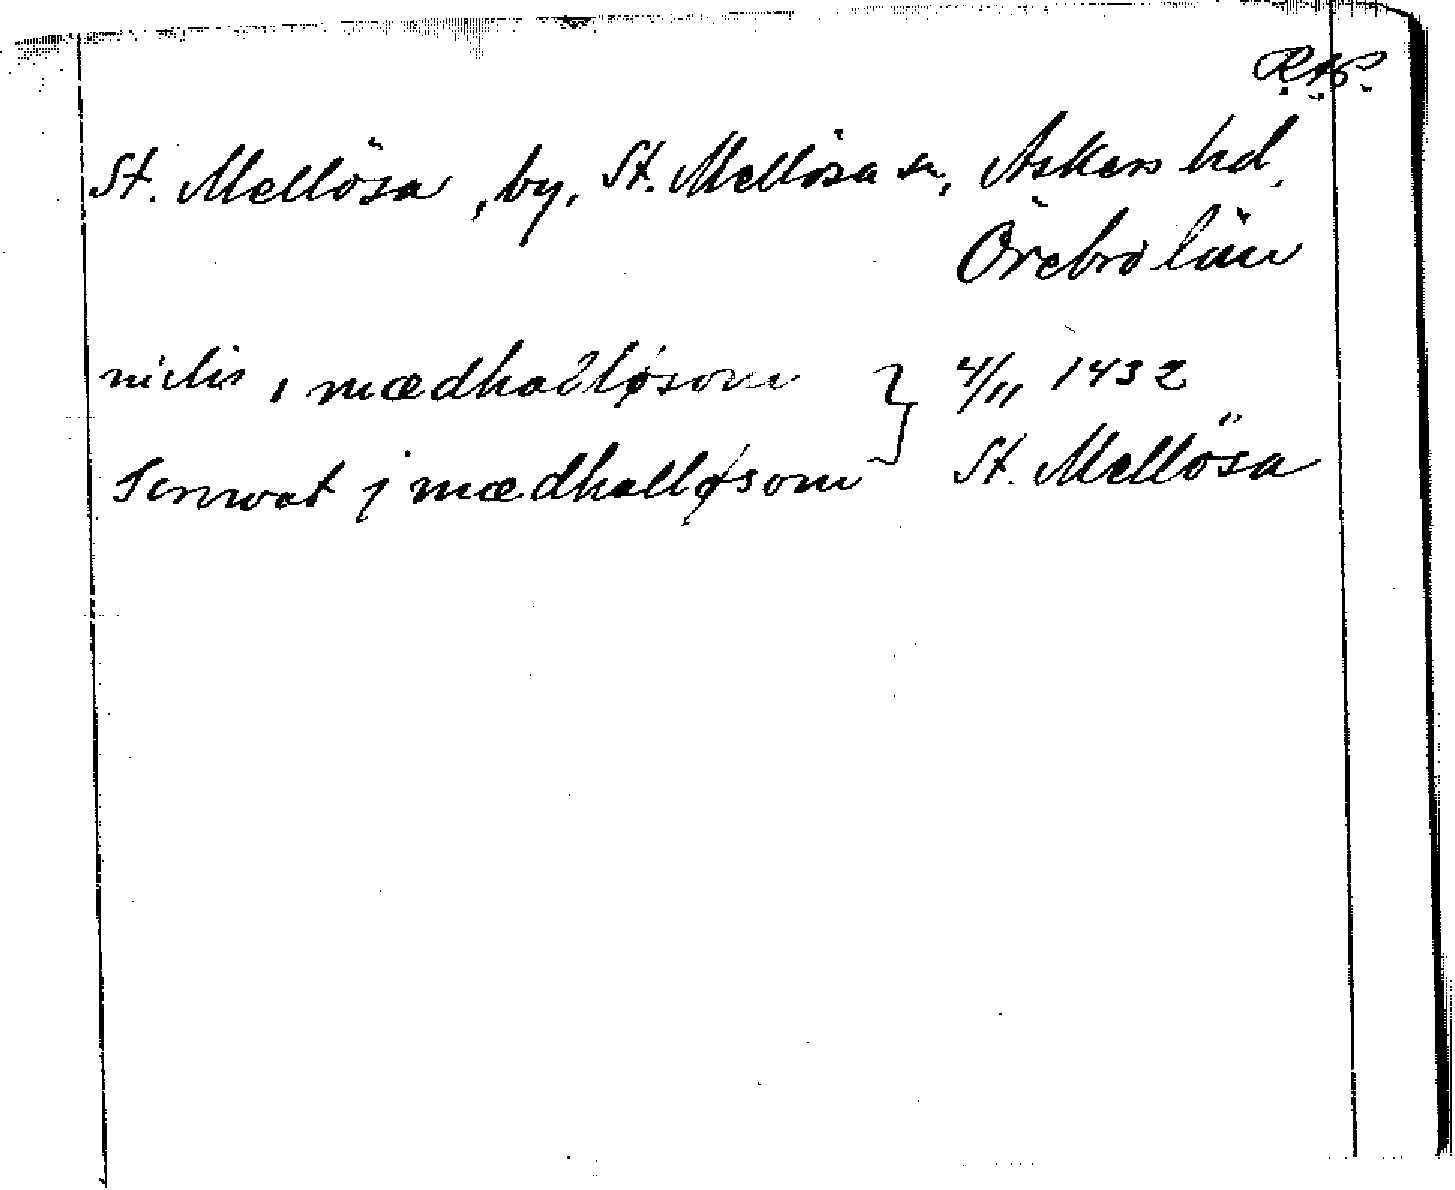 R.A.P.
St. Mellösa, by, St. Mellösa sn, Askers hd.
Örebro län
nielis i mædhalløsom } 4/11 1432
j mædhalløsom St. Mellösa